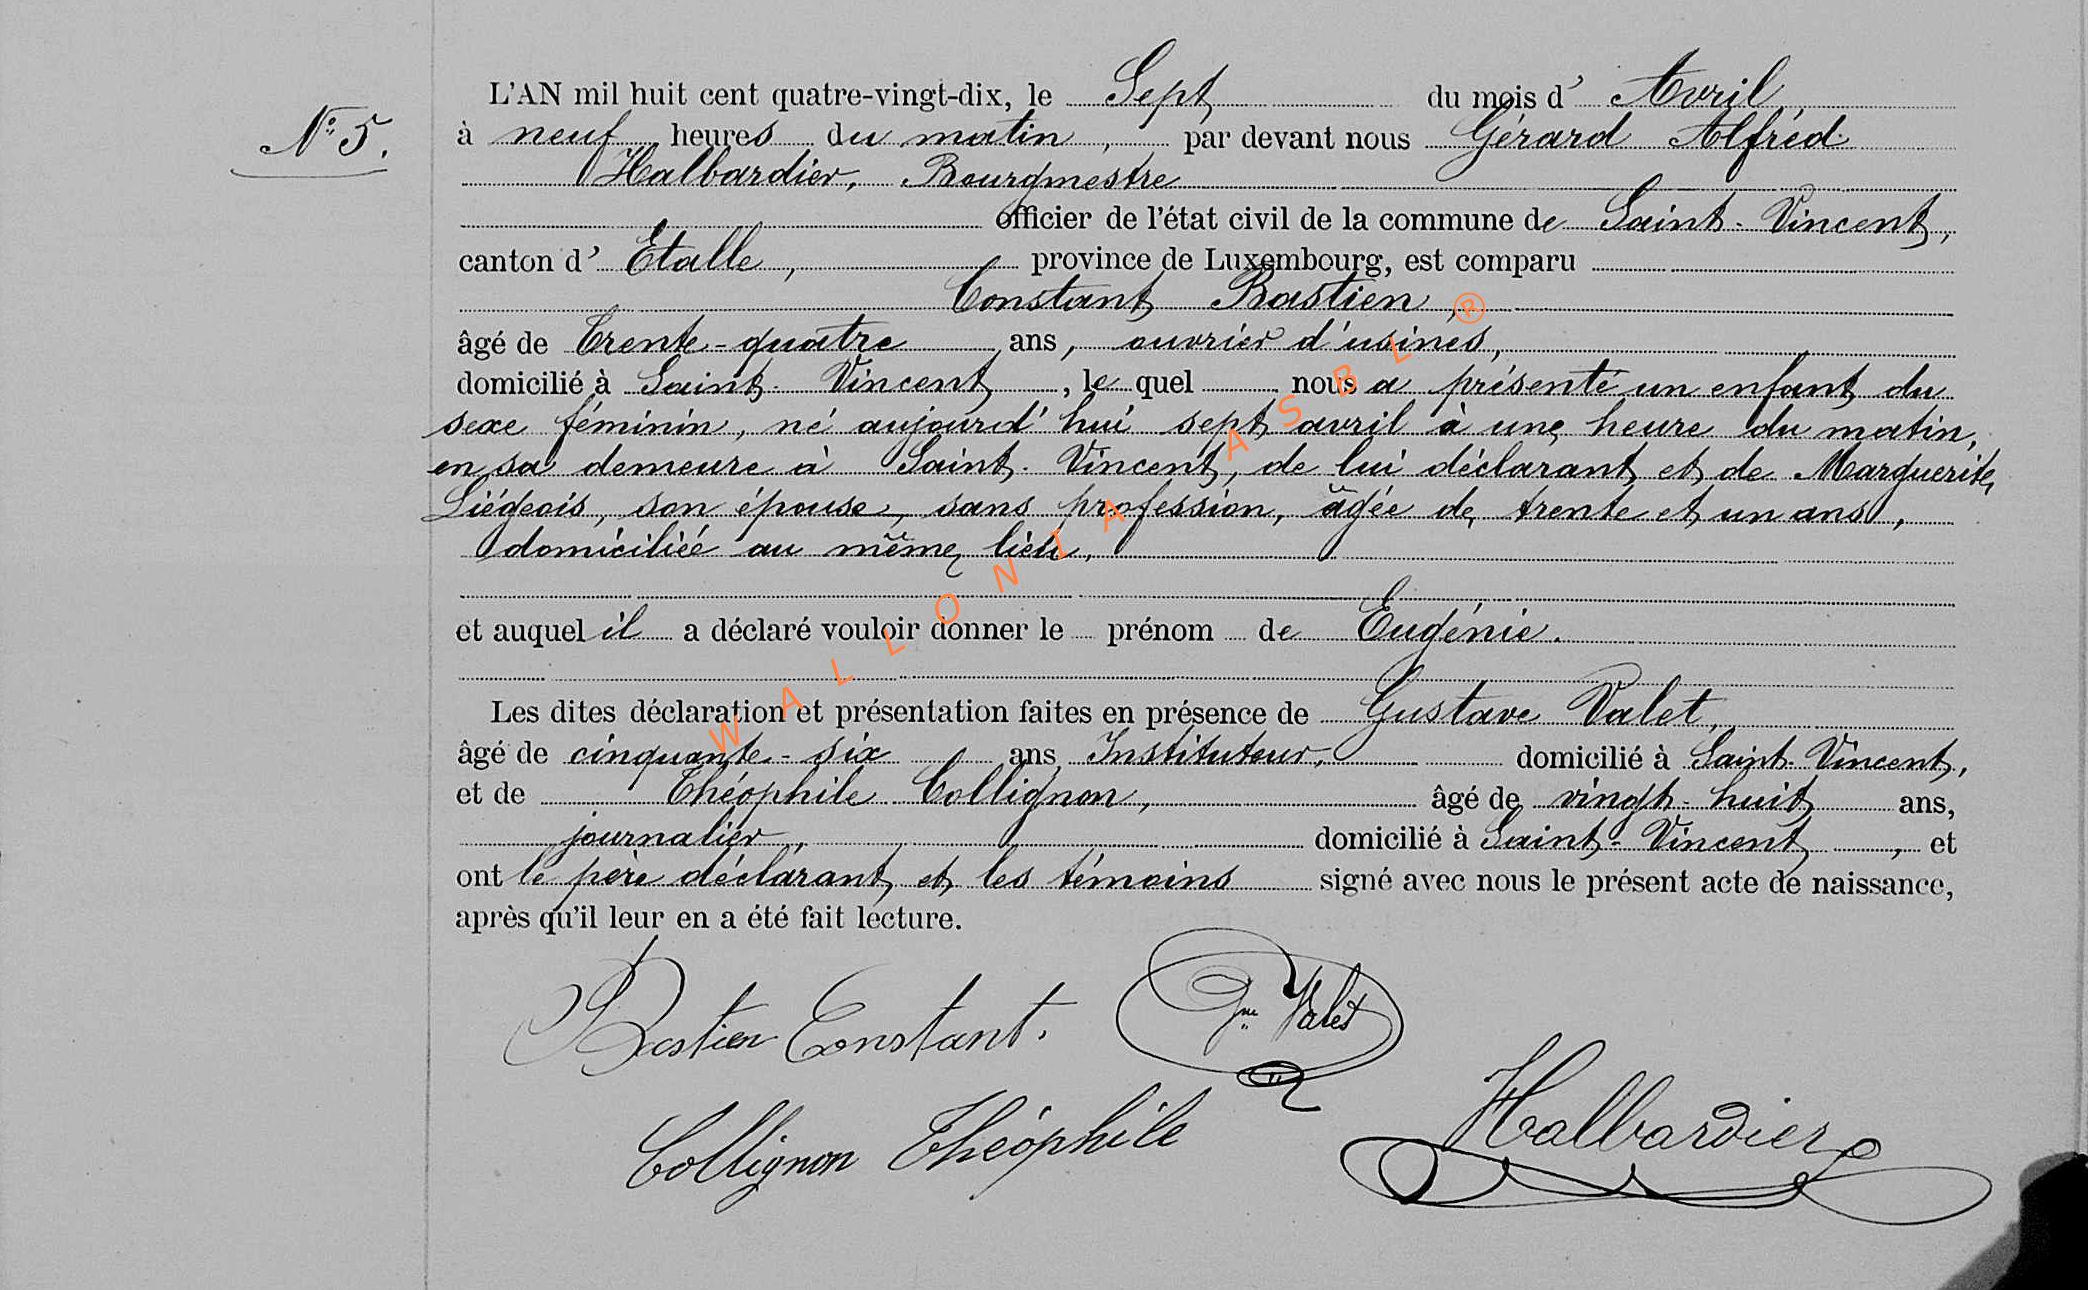 N° 5.
L'AN mil huit cent quatre-vingt-dix, le Sept du mois d' Avril,
à neuf heures du matin, par devant nous Gérard Alfred
Halbardier, Bourgmestre
officier de l'état civil de la commune de Saint-Vincent,
canton d' Etalle, province de Luxembourg, est comparu
Constant Bastien,
âgé de trente-quatre ans, ouvrier d'usines,
domicilié à Saint-Vincent, le quel nous a présenté un enfant du
sexe féminin, né aujourd'hui sept avril à une heure du matin,
en sa demeure à Saint-Vincent, de lui déclarant et de Marguerite
Liégeois, son épouse, sans profession, âgée de trente et un ans,
domiciliée au même lieu,
et auquel il a déclaré vouloir donner le prénom de Eugénie.
Les dites déclaration et présentation faites en présence de Gustave Valet,
âgé de cinquante-six ans, Instituteur, domicilié à Saint-Vincent,
et de Théophile Collignon, âgé de vingt-huit ans,
journalier, domicilié à Saint-Vincent, et
ont le père déclarant et les témoins signé avec nous le présent acte de naissance,
après qu'il leur en a été fait lecture.
Bastien Constant. Gve Valet
Collignon Théophile Halbardier
WALLONIA ASBL ®